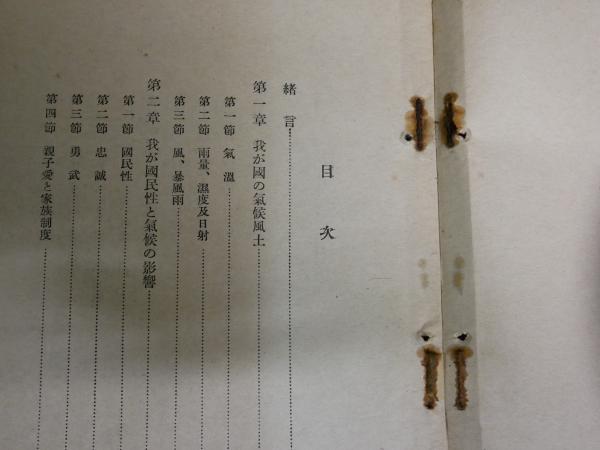 目次
緒言
第一章 我が國の氣候風土
第一節 氣溫
第二節 雨量、濕度及日射
第三節 風、暴風雨
第二章 我が國民性と氣候の影響
第一節 國民性
第二節 忠誠
第三節 勇武
第四節 親子愛と家族制度